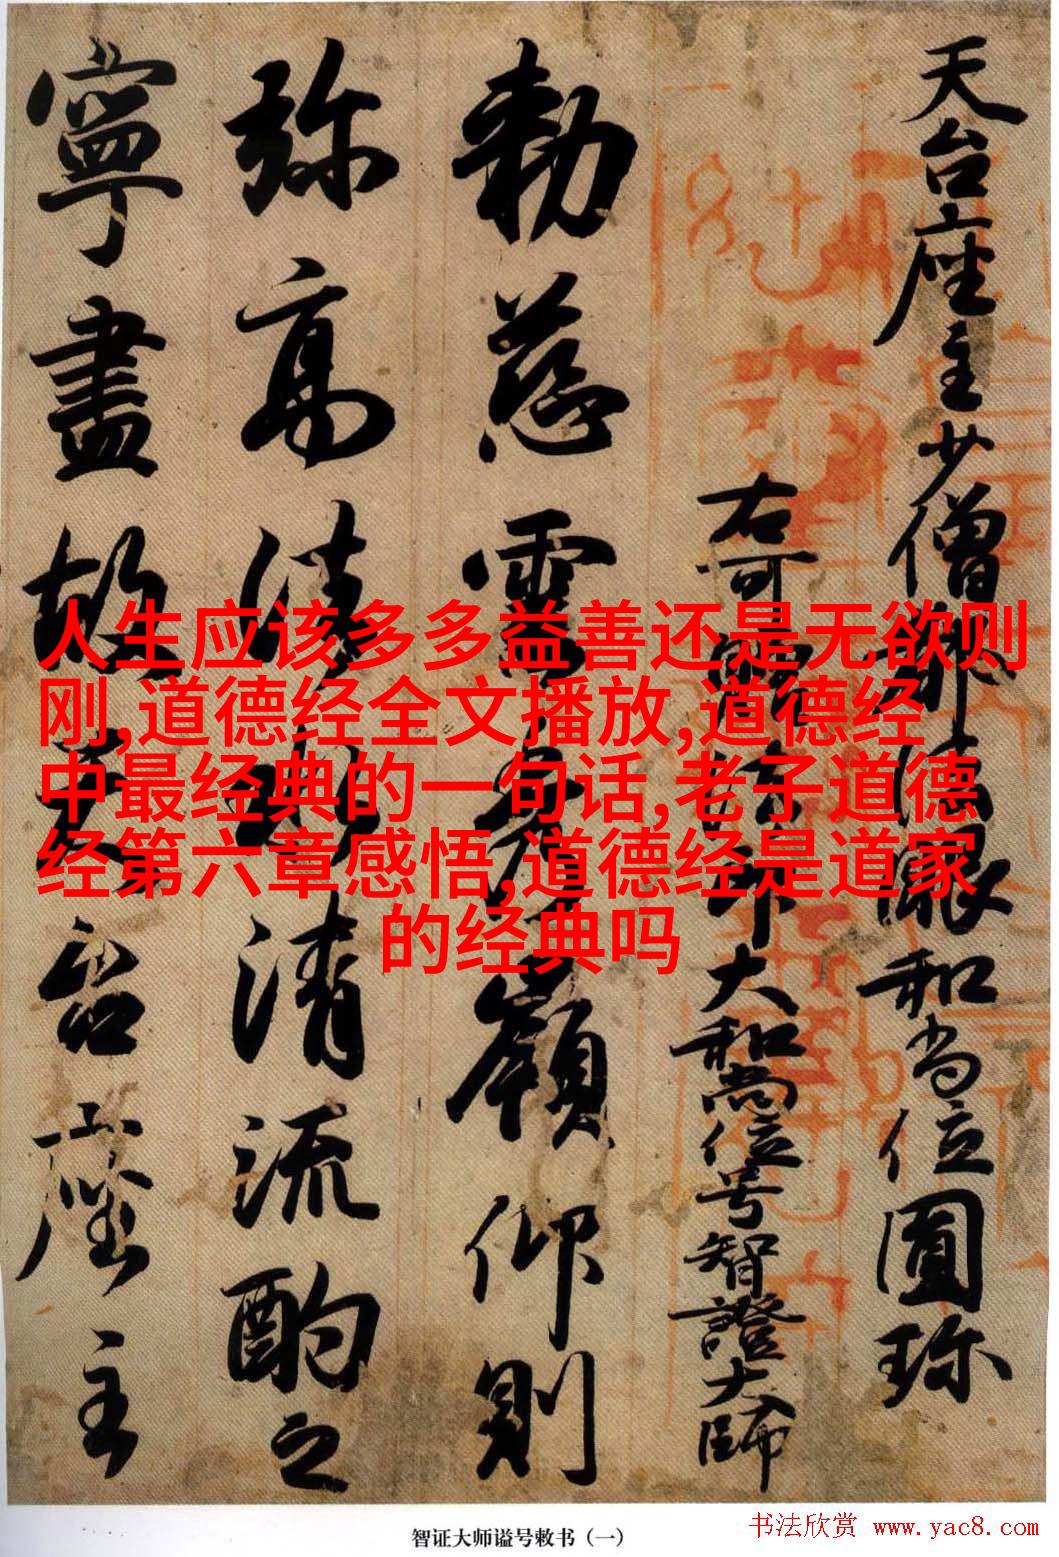 天台座主少僧都法眼和尚位圓珍
右可贈法印大和尚位号智證大師
勅慈雲秀嶺仰則
弥高清流酌之
寧盡故天台座主
人生应该多多益善还是无欲则
刚,道德经全文播放,道德经
中最经典的一句话,老子道德
经第六章感悟,道德经是道家
的经典吗
智证大师谥号敕书（一）
书法欣赏 www.yac8.com